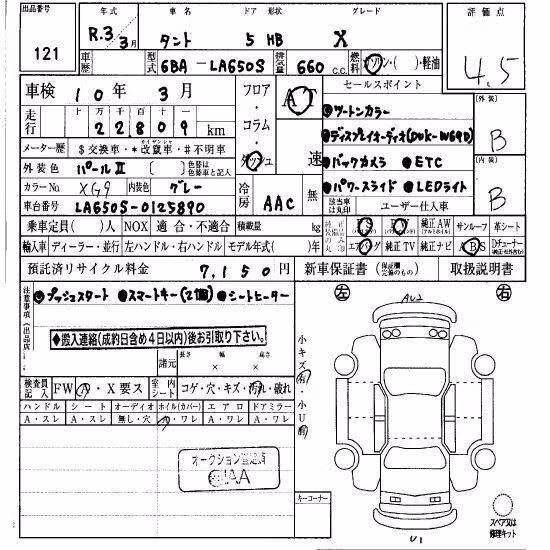 出品番号
121
年式
R.3 3月
車名
タント
ドア 形状
5 HB
グレード
X
評価点
4.5
車歴
型式
6BA - LA650S
排気量
660 c.c.
燃料
ガソリン・( )・軽油
車検 10年 3月
フロア・コラム・ダッシュ
AT
速
セールスポイント
●ツートンカラー
●ディスプレイオーディオ(DMK-W69D)
●バックカメラ ●ETC
●パワースライド ●LEDライト
外装
B
内装
B
走行
十 万 千 百 十 一
22809 km
メーター歴 $交換車・*改竄車・#不明車
外装色 パールⅡ ( ) 色替は色替車と記入
カラーNo. X99 内装色 グレー
車台番号 LA650S-0125890
冷房 AAC 無
該当車は丸印
ユーザー仕入車
乗車定員( )人 NOX 適合・不適合 積載量 kg
PS PW 純正AW サンルーフ 革シート
輸入車 ディーラー・並行 左ハンドル・右ハンドル モデル年式( )年
エアバッグ 純正TV 純正ナビ ABS
預託済リサイクル料金 7,150円
新車保証書 取扱説明書
注意事項(出品店)
●プッシュスタート ●スマートキー(2個) ●シートヒーター
◆搬入連絡(成約日含め4日以内)後お引取り下さい。
左 右
AU2
諸元 長さ × 幅 × 高さ
小キズ(有)・小U(有)
検査員記入 FW A・X要ス 室内シート コゲ・穴・キズ・汚れ・破れ
ハンドル シート オーディオ ホイル(カバー) エアロ ドアミラー
A・スレ A・スレ 無し・穴 A・ワレ A・ワレ A・ワレ
オークション査定済
JAA
キーコーナー
スペア又は修理キット
U1